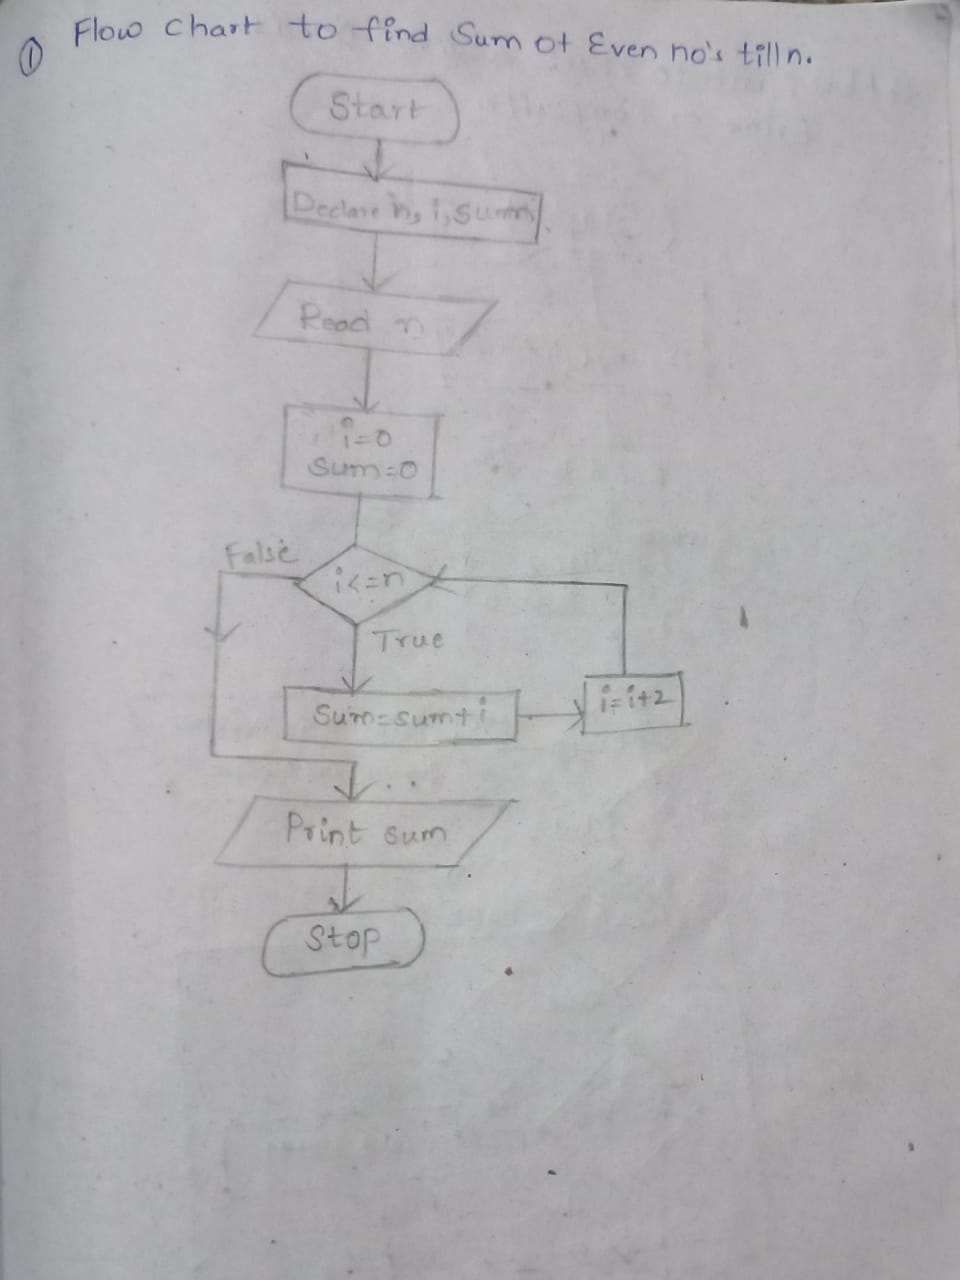 ① Flow Chart to find Sum of Even no's till n.
Start
Declare n, i, sum
Read n
i=0
sum=0
False
i<=n
True
Sum=sum+i
i=i+2
Print sum
Stop